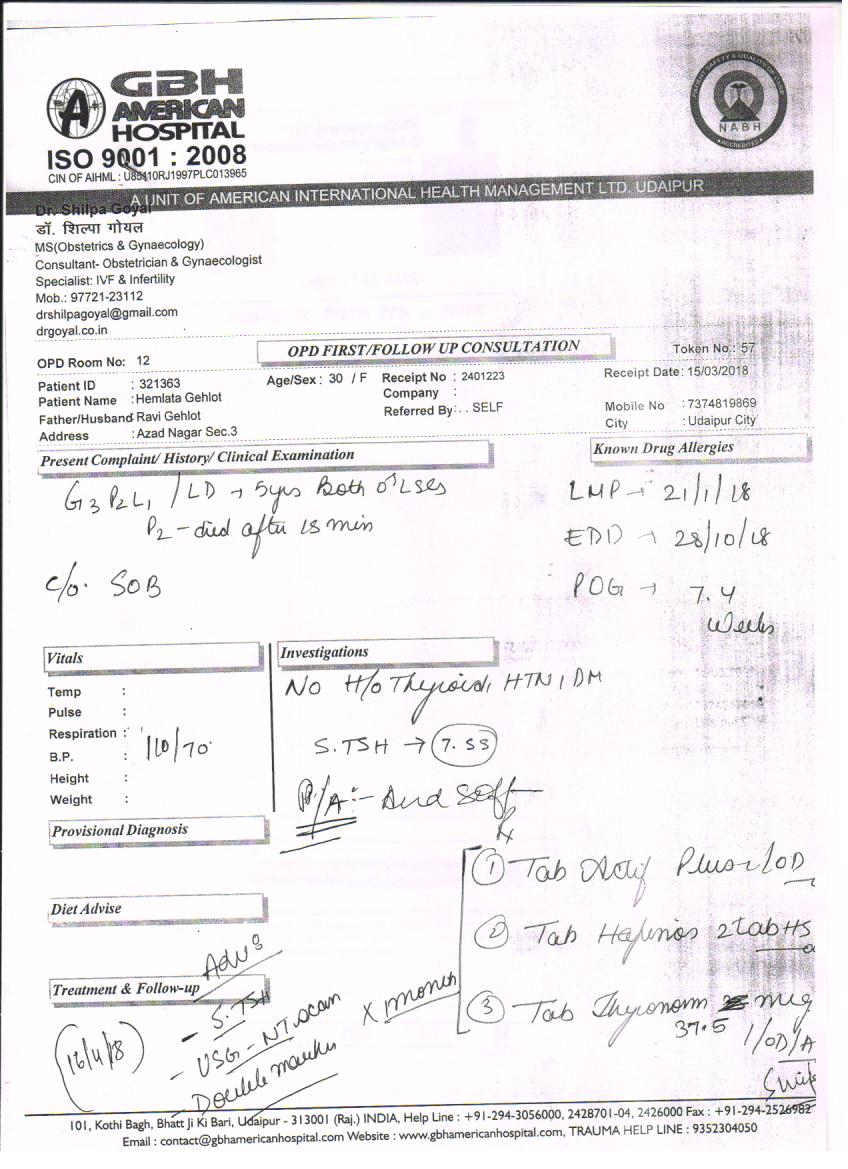 GBH
AMERICAN
HOSPITAL
ISO 9001 : 2008
CIN OF AIHML : U85110RJ1997PLC013965
PATIENT SAFETY & QUALITY OF CARE
NABH
ACCREDITED
A UNIT OF AMERICAN INTERNATIONAL HEALTH MANAGEMENT LTD. UDAIPUR
Dr. Shilpa Goyal
डॉ. शिल्पा गोयल
MS(Obstetrics & Gynaecology)
Consultant- Obstetrician & Gynaecologist
Specialist: IVF & Infertility
Mob.: 97721-23112
drshilpagoyal@gmail.com
drgoyal.co.in
OPD Room No: 12
OPD FIRST/FOLLOW UP CONSULTATION
Token No.: 57
Patient ID : 321363 Age/Sex : 30 / F Receipt No : 2401223 Receipt Date: 15/03/2018
Patient Name : Hemlata Gehlot Company :
Father/Husband: Ravi Gehlot Referred By: . . SELF Mobile No : 7374819869
Address : Azad Nagar Sec.3 City : Udaipur City
Present Complaint/ History/ Clinical Examination
Known Drug Allergies
G3 P2 L1 / LD → 5yrs Both ♂ LSCS
P2 - died after 15 min
LMP → 21/1/18
EDD → 28/10/18
c/o. SOB
POG → 7.4
weeks
Vitals
Investigations
Temp :
Pulse :
Respiration :
B.P. : 110/70
Height :
Weight :
No H/o Thyroid, HTN, DM
S.TSH → 7.53
P/A :-
Provisional Diagnosis
Rx
① Tab Actif Plus 1 OD
Diet Advise
② Tab 2 tab HS
Treatment & Follow-up
Adv:
- S.TSH
- USG - NT scan
- Double marker
X 1 month
③ Tab Thyronorm mcg
37.5 1/OD/A
16/4/18
101, Kothi Bagh, Bhatt Ji Ki Bari, Udaipur - 313001 (Raj.) INDIA, Help Line : +91-294-3056000, 2428701-04, 2426000 Fax : +91-294-2526982
Email : contact@gbhamericanhospital.com Website : www.gbhamericanhospital.com, TRAUMA HELP LINE : 9352304050